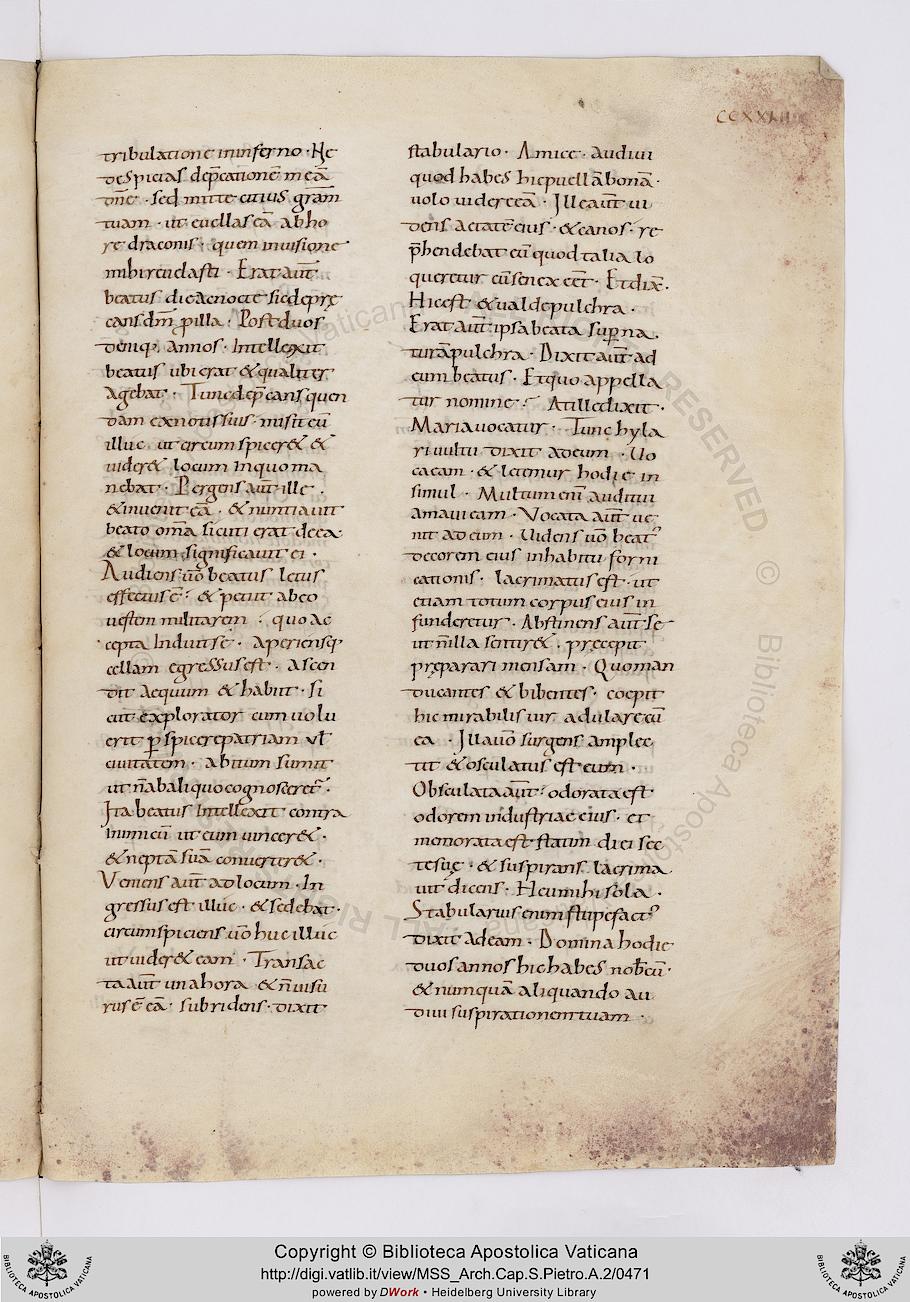 CCXXIIII
tribulatione in inferno · Ne
despicias dep̄cationē meā
dn̄e · sed mitte citius grām
tuam · ut euellas eā ab ho
re draconis · quem in uisione
mihi reuelasti · Erat aūt
beatus die ac nocte sic depre
cans dm̄ p illa · Post duos
deniq; annos · Intellexit
beatus ubi erat & qualiter
agebat · Tunc dep̄cans quen
dam ex notis suis · misit eū
illuc · ut circumspicer& &
uider& locum in quo ma
nebat · Pergens aūt ille ·
& inuenit eā · & nuntiauit
beato om̄a sicuti erat de ea ·
& locum significauit ei ·
Audiens ūo beatus letus
effectus ē · & petiit ab eo
uestem militarem · quo ac
cepta Induit se · aperiensq;
cellam egressus est · ascen
dit aequum & habiit · si
cut explorator cum uolu
erit pspicere patriam ul̄
ciuitatem · abitum sumit
ut n̄ ab aliquo cognosceret̄ ·
Ita beatus Intellexit contra
inimicū ut eum uincer& ·
& neptā suā conuerter& ·
Veniens aūt ad locum · In
gressus est illuc · & sedebat ·
circumspiciens ūo huc illuc
ut uider& eam · Transac
ta aūt una hora & n̄ uisu
rus ē eā · subridens · dixit
stabulario · Amice · audiui
quod habes hic puellā bonā ·
uolo uidere eā · Ille aūt ui
dens aetatē eius · & canos · re
p̄hendebat eū quod talia lo
queretur cū senex eēt · Et dix̄ ·
Hic est & ualde pulchra ·
Erat aūt ipsa beata sup na
turā pulchra · Dixit aūt ad
eum beatus · Et quo appella
tur nomine · At ille dixit ·
Maria uocatur · Tunc hyla
ri uultu dixit ad eum · Uo
ca eam · & letemur hodie in
simul · Multum enī auditui
amaui eam · Vocata aūt ue
nit ad eum · Uidens ūo beat᾽
decorem eius in habitu forni
cationis · lacrimatus est · ut
etiam totum corpus eius in
funderetur · Abstinens aūt se
ut n̄ illa sentir& · precepit
preparari mensam · Quo man
ducantes & bibentes · coepit
hic mirabilis uir adulare cū
ea · Illa ūo surgens amplec
tit & osculatus est eum ·
Obsculata aūt · odorata est
odorem industriae eius · et
memorata est statim diei sec
tesue · & suspirans lacrima
uit dicens · Heu mihi sola ·
Stabularius enim stupefact᾽
dixit ad eam · Domina hodie
duos annos hic habes nob̄cū ·
& numquā aliquando au
diui suspirationem tuam ·
RESERVED
© Biblioteca Aposto
Copyright © Biblioteca Apostolica Vaticana
http://digi.vatlib.it/view/MSS_Arch.Cap.S.Pietro.A.2/0471
powered by DWork • Heidelberg University Library
BIBLIOTECA APOSTOLICA VATICANA
BIBLIOTECA APOSTOLICA VATICANA